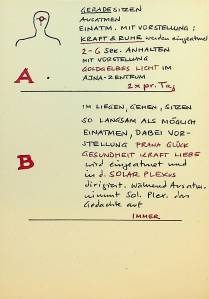 GERADESITZEN
AUSATMEN
EINATM. MIT VORSTELLUNG:
KRAFT & RUHE werden eingeatmet
2-6 SEK. ANHALTEN
MIT VORSTELLUNG
GOLDGELBES LICHT im
AJNA-ZENTRUM
A. 2x pr. Tag
IM LIEGEN, GEHEN, SITZEN
SO LANGSAM ALS MÖGLICH
EINATMEN, DABEI VOR-
STELLUNG PRANA GLÜCK
GESUNDHEIT KRAFT LIEBE
B wird eingeatmet und
in d. SOLAR PLEXUS
dirigiert. Während Ausatm.
nimmt Sol. Plex. das
Gedachte auf
IMMER